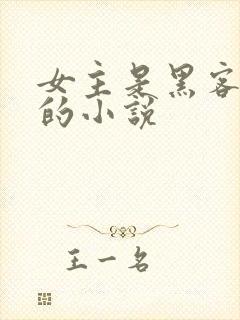 女主是黑客
的小说
王一名